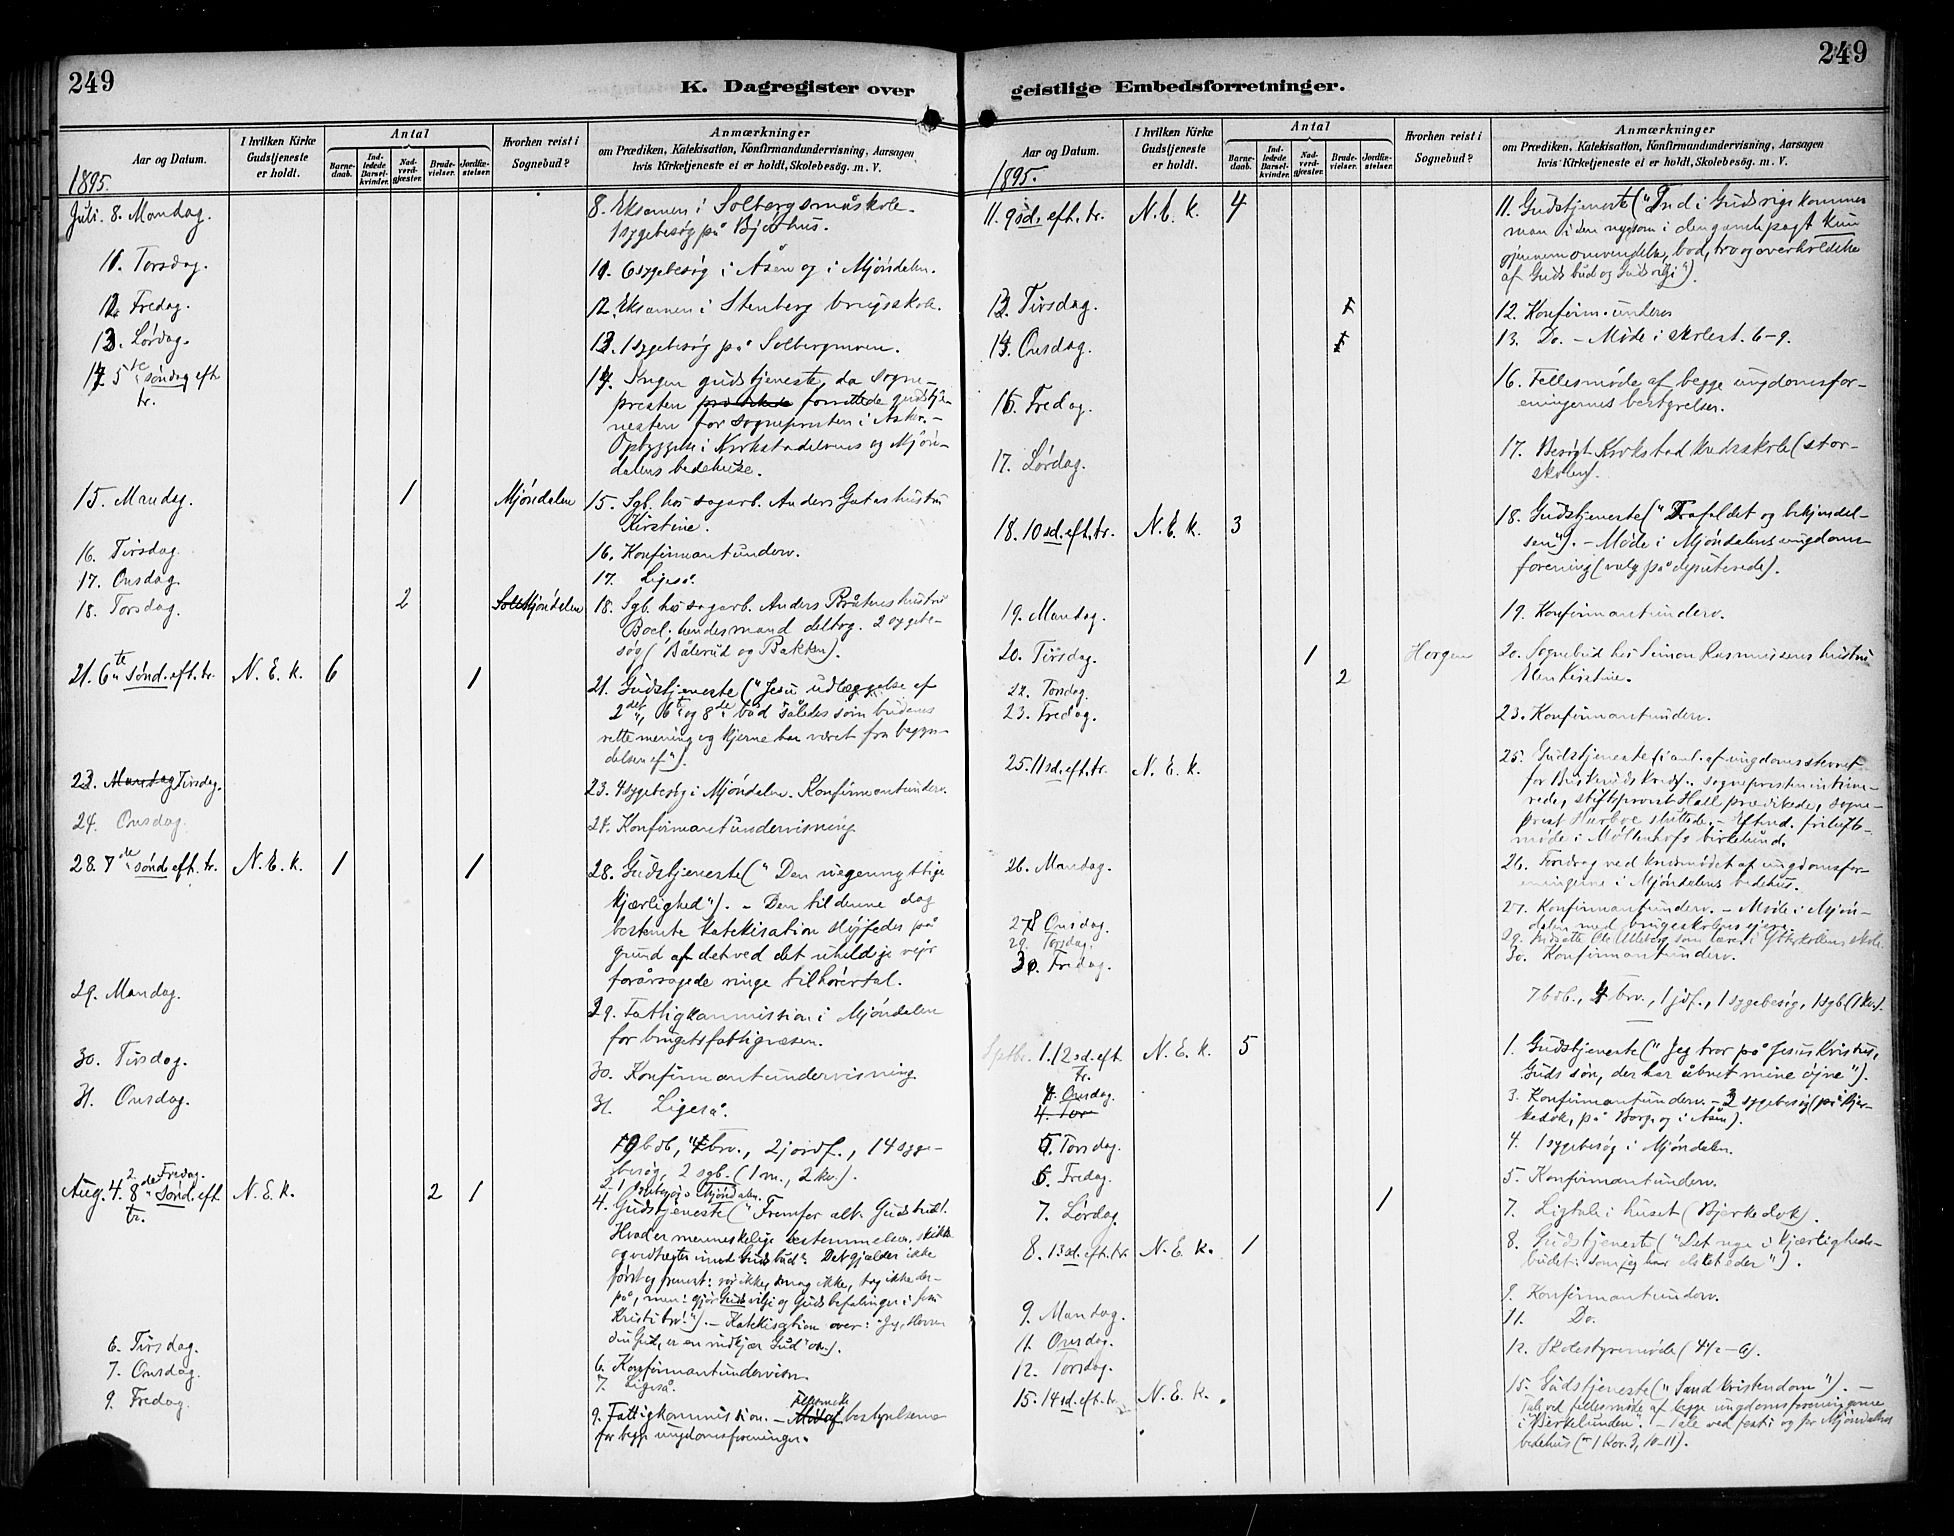 249
K. Dagregister over
Aar og Datum.
I hvilken Kirke Gudstjeneste er holdt.
Antal
Barnedaab.
Indledede Barselkvinder.
Nadverdgjæster.
Brudevielser.
Jordfæstelser.
Hvorhen reist i Sognebud?
Anmærkninger
om Prædiken, Katekisation, Konfirmandundervisning, Aarsagen
hvis Kirketjeneste ei er holdt, Skolebesög. m. V.
1895.
Juli. 8. Mandag. 8. Eksamen i Solbergsmåskole.
1 sygebesøg på Bjerkhus.
11. Torsdag. 11. 6 sygebesøg i Åsen og i Mjöndalen.
12. Fredag. 12. Eksamen i Stenberg brugsskole.
13. Lördag. 13. 1 sygebesøg på Solbergmoen.
14. 5te søndag eft. tr. 14. Ingen gudstjeneste, da sogne-
presten forrettede gudstje-
nesten for sognepresten i Asker. -
Opbyggelse i Krokstadelvens og Mjön-
dalens bedehuse.
15. Mandag. 1 Mjöndalen 15. Sgb. hos sagarb. Anders Gatas hustru
Kirstine.
16. Tirsdag. 16. Konfirmantunderv.
17. Onsdag. 17. Ligeså.
18. Torsdag. 2 Mjöndalen 18. Sgb. hos sagarb. Anders Bråtens hustru
Boel; hendes mand deltog. 2 sygebe-
søg (Bålerud og Bakken).
21. 6te sønd. eft. tr. N. E. K. 6 1 21. Gudstjeneste ("Jesu udlæggelse af
2det, 6te og 8de bud således som budenes
rette mening og kjerne har været fra begyn-
delsen af").
23. Mandag Tirsdag. 23. 4 sygebesøg i Mjöndalen. Konfirmantunderv.
24. Onsdag. 24. Konfirmantundervisning
28. 7de sønd. eft. tr. N. E. K. 1 1 28. Gudstjeneste ("Den uegennyttige
kjærlighed"). - Den til denne dag
bestemte katekisation sløjfedes på
grund af det ved det uheldige vejr
forårsagede ringe tilhörertal.
29. Mandag. 29. Fattigkommission i Mjöndalen
for brugets fattigvæsen.
30. Tirsdag. 30. Konfirmantundervisning
31. Onsdag. 31. Ligeså.
bdb, brv., 2 jordf., 14 syge-
besøg, 2 sgb. (1 m., 2 kv.).
2. Fredag. 2. 1 sygebesøg i Mjöndalen.
Aug. 4. 8de sønd. eft. tr. N. E. K. 2 1 4. Gudstjeneste ("Fremfor alt: Guds bud!
Hvad er menneskelige bestemmelser, skikke
og vedtægter imod Guds bud? Det gjælder ikke
først og fremst: rør ikke, smag ikke, tag ikke der-
på, men: gjør Guds vilje og Guds befalinger i Jesu
Kristi tro!"). - Katekisation over: "Jeg, Herren
din Gud, er en nidkjær Gud" osv.).
6. Tirsdag. 6. Konfirmantundervisn.
7. Onsdag. 7. Ligeså.
9. Fredag. 9. Fattigkommission. - Fellesmøde af bestyrelserne
for begge ungdomsforeninger.
249
geistlige Embedsforretninger.
Aar og Datum.
I hvilken Kirke Gudstjeneste er holdt.
Antal
Barnedaab.
Indledede Barselkvinder.
Nadverdgjæster.
Brudevielser.
Jordfæstelser.
Hvorhen reist i Sognebud?
Anmærkninger
om Prædiken, Katekisation, Konfirmandundervisning, Aarsagen
hvis Kirketjeneste ei er holdt, Skolebesög. m. V.
1895.
11. 9 sd. eft. tr. N. E. K. 4 11. Gudstjeneste ("Ind i Guds rige kommer
man i den nye som i den gamle pagt kun
gjennem omvendelse, bod, tro og overholdelse
af Guds bud og Guds vilje").
Tirsdag. 12. Konfirm. underv.
Onsdag. 13. Do. - Møde i 6-9.
16. Fredag. 16. Fellesmøde af begge ungdomsfor-
eningernes bestyrelser.
17. Lördag. 17. Besøgt Krokstad kredsskole (stor-
skolen).
18. 10 sd. eft. tr. N. E. K. 3 18. Gudstjeneste ("Frafaldet og bekjendel-
sen"). - Møde i Mjöndalens ungdoms-
forening (valg på deputerede).
19. Mandag. 19. Konfirmantunderv.
20. Tirsdag. 1 Horgen 20. Sognebud hos Simon Rasmussens hustru
Kirstine.
22. Torsdag. 2
23. Fredag. 23. Konfirmantunderv.
25. 11 sd. eft. tr. N. E. K. 25. Gudstjeneste i anl. af ungdomsstevnet
for Buskeruds kreds. Sognepresten intime-
rede, stiftsprovst Hall prædikede, sogne-
prest sluttede. - Eftmd. frilufts-
møde i Møllenhofs birkelund.
26. Mandag. 26. Foredrag ved kredsmødet af ungdomsfor-
eningerne i Mjöndalens bedehus.
Onsdag. 27. Konfirmantunderv. - Møde i Mjön-
dalen med brugsskolens ejere.
29. Torsdag. 29. Indsatte Ole Ulleberg som lærer i Ytterkollens skole.
30. Fredag. 30. Konfirmantunderv.
7 bdb., 4 brv., 1 jdf., 1 sygebesøg, 1 sgb (1 kv.).
Septbr. 1. 12 sd. eft. tr. N. E. K. 5 1. Gudstjeneste ("Jeg tror på Jesus Kristus,
Guds søn, der har åbnet mine øjne").
Onsdag. 3. Konfirmantunderv. - sygebesøg (på Bjer-
kedok, på Borge og i Åsen).
4. Tor
5. Torsdag. 4. 1 sygebesøg i Mjöndalen.
6. Fredag. 5. Konfirmantunderv.
7. Lördag. 1 7. Ligtale i huset (Bjerkedok).
8. 13 sd. eft. tr. N. E. K. 1 8. Gudstjeneste ("Det nye i kjærligheds-
budet: som jeg har elsket eder").
9. Mandag. 9. Konfirmantunderv.
11. Onsdag. 11. Do.
12. Torsdag. 12. Skolestyremøde (4½-6).
15. 14 sd. eft. tr. N. E. K. 15. Gudstjeneste ("Sand kristendom"). -
Tale ved fellesmøde af begge ungdomsforeningerne
i "Birkelunden". - Tale ved fest i og for Mjöndalens
bedehus (1 Kor. 3, 10-11).